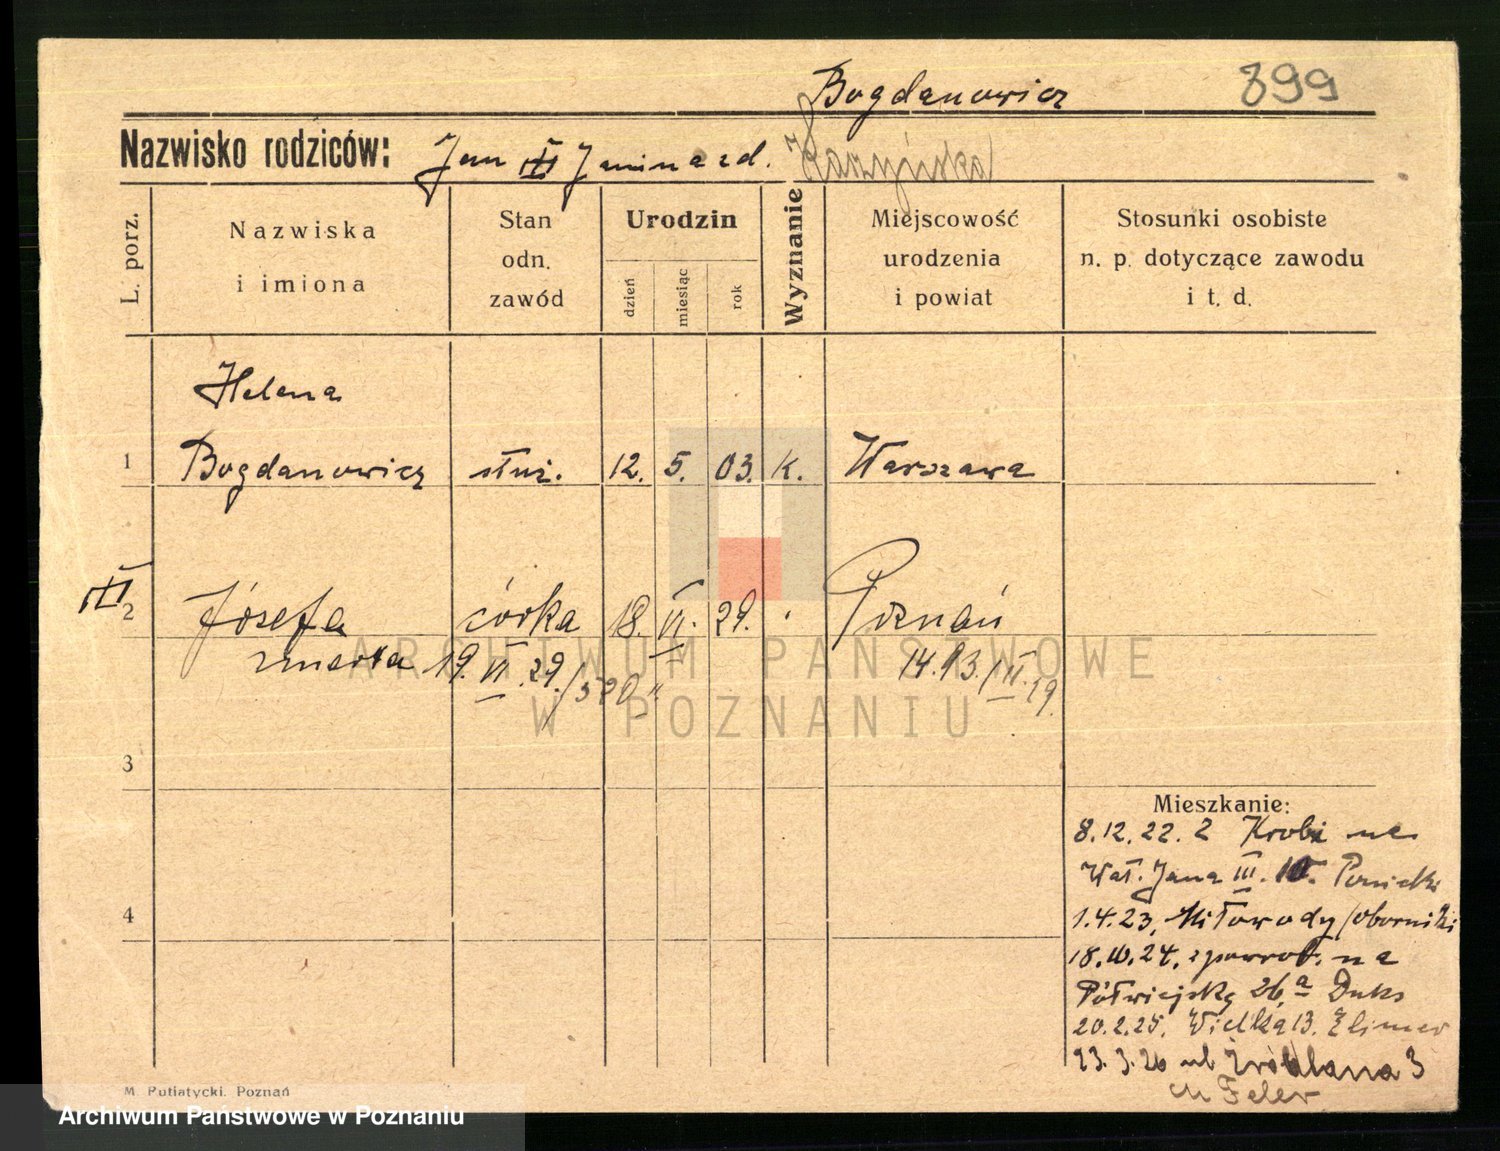 Bogdanowicz 899
Nazwisko rodziców: Jan III Janina zd.
L. porz.
Nazwiska i imiona
Stan odn. zawód
Urodzin
dzień
miesiąc
rok
Wyznanie
Miejscowość urodzenia i powiat
Stosunki osobiste n. p. dotyczące zawodu i t. d.
Helena
1 Bogdanowicz służ. 12. 5. 03. k. Warszawa
III 2 Józefa córka 18. VI. 29. Poznań
zmarła 19. VI. 29. / 14.
3
4
Mieszkanie:
8.12.22. z Krobi na
Wał. Jana III. 10.
1.4.23, Miłowody / Oborniki
18. 24. zpowrot. na
Półwiejską 26 a Duks
20.2.25. Wielka 13.
23.3.26 ul. 3
M. Putiatycki. Poznań
ARCHIWUM PAŃSTWOWE
W POZNANIU
Archiwum Państwowe w Poznaniu